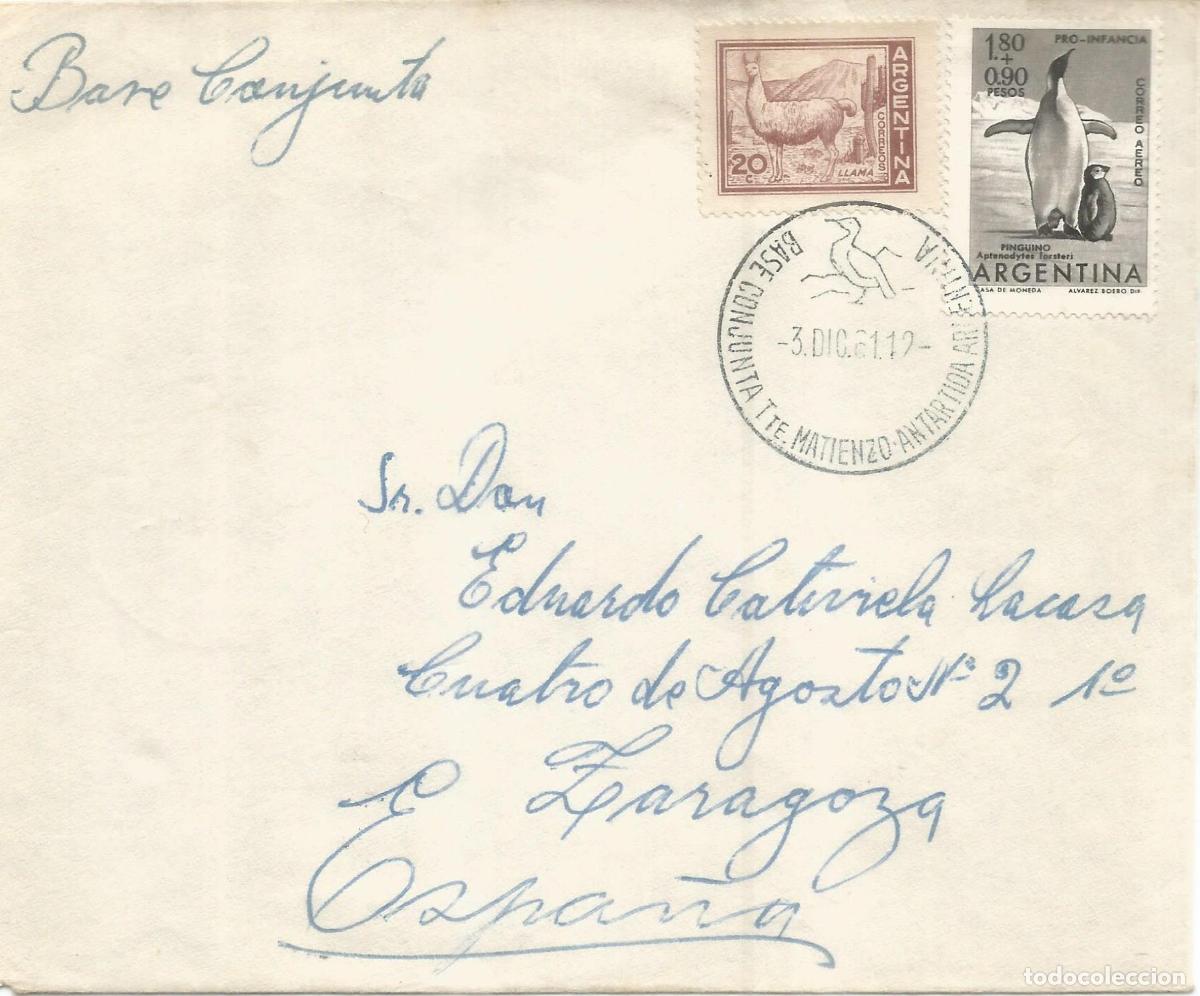 Base Conjunta
20
C
LLAMA
CORREOS
ARGENTINA
1.80
+
0.90
PESOS
PRO-INFANCIA
CORREO AEREO
PINGUINO
Aptenodytes forsteri
ARGENTINA
CASA DE MONEDA ALVAREZ BOERO DIP.
BASE CONJUNTA TTE. MATIENZO-ANTARTIDA ARGENTINA
-3.DIC.61.12-
Sr. Don
Eduardo Cativiela Lacasa
Cuatro de Agosto Nº 2 1º
E Zaragoza
España
todocoleccion